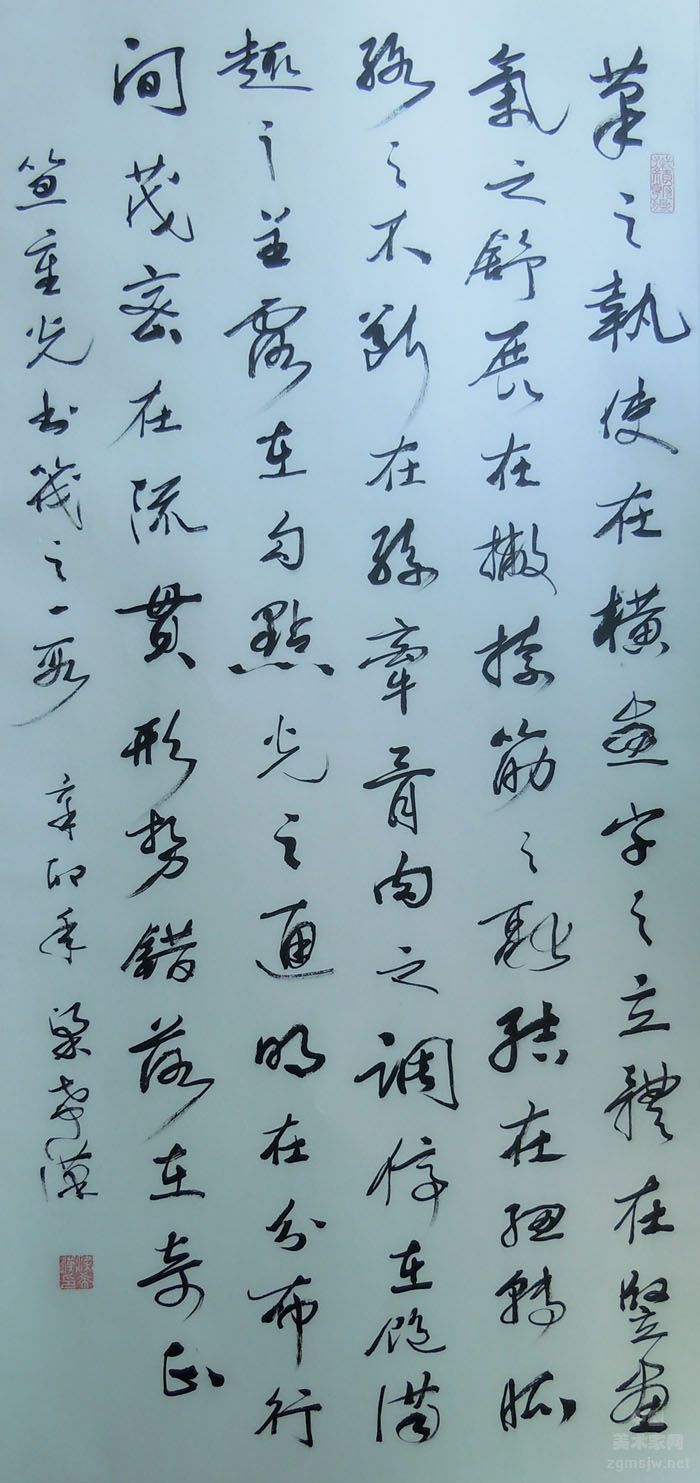 筆之執使在橫畫字之立體在竪畫
氣之舒展在撇捺筋之融結在紐轉脈
絡之不斷在絲牽骨肉之調停在飽滿
趣之呈露在勾點光之通明在分布行
間茂密在流貫形势錯落在奇正
笪重光书筏之一段 辛卯年 梁
美术家网
zgmsjw.net